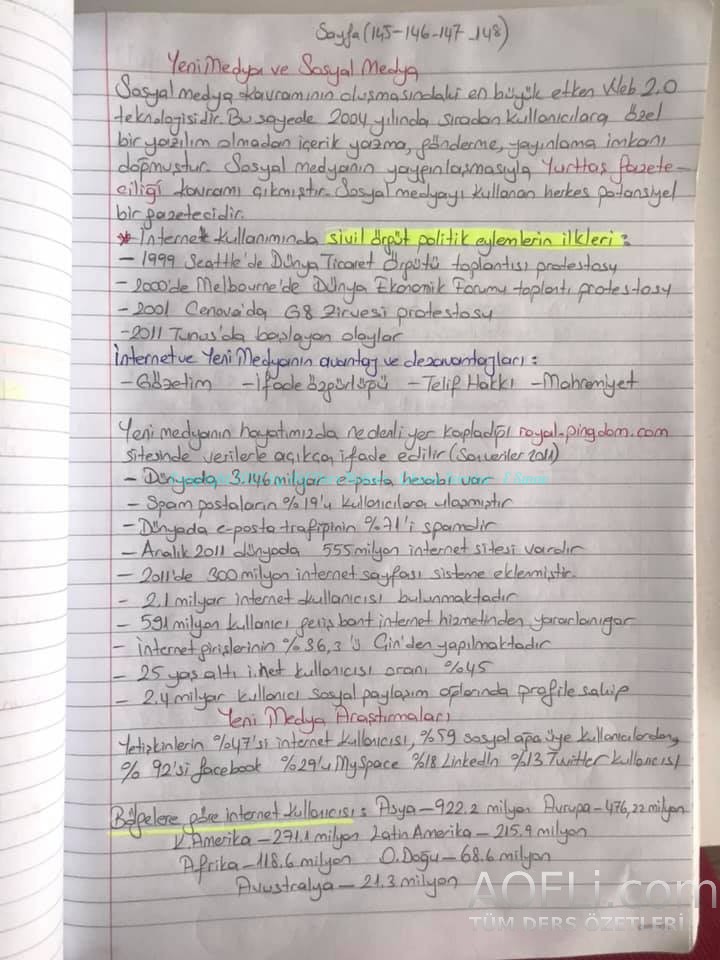 Sayfa (145-146-147-148)
Yeni Medya ve Sosyal Medya
Sosyal medya kavramının oluşmasındaki en büyük etken Web 2.0
teknolojisidir. Bu sayede 2004 yılında sıradan kullanıcılara özel
bir yazılım olmadan içerik yazma, gönderme, yayınlama imkanı
doğmuştur. Sosyal medyanın yaygınlaşmasıyla Yurttaş gazete-
ciliği kavramı çıkmıştır. Sosyal medyayı kullanan herkes potansiyel
bir gazetecidir.
* İnternet kullanımında sivil örgüt politik eylemlerin ilkleri:
- 1999 Seattle'de Dünya Ticaret Örgütü toplantısı protestosy
- 2000'de Melbourne'de Dünya Ekonomik Forumu toplantı protestosy
- 2001 Cenova'da G8 Zirvesi protestosy
- 2011 Tunus'da başlayan olaylar
İnternet ve Yeni Medyanın avantaj ve dezavantajları:
- Gözetim - İfade özgürlüğü - Telif Hakkı - Mahremiyet
Yeni medyanın hayatımızda nedenli yer kapladığı royal.pingdom.com
sitesinde verilerle açıkça ifade edilir (veriler 2011)
- Dünyada 3.146 milyar e-posta hesabı var
- Spam postaların %19'u kullanıcılara ulaşmıştır
- Dünyada e-posta trafiğinin %71'i spamdir
- Aralık 2011 dünyada 555 milyon internet sitesi vardır
- 2011'de 300 milyon internet sayfası sisteme eklenmiştir.
- 2.1 milyar internet kullanıcısı bulunmaktadır
- 591 milyon kullanıcı geniş bant internet hizmetinden yararlanıyor
- İnternet girişlerinin %36,3'ü Çin'den yapılmaktadır
- 25 yaş altı i.net kullanıcısı oranı %45
- 2.4 milyar kullanıcı sosyal paylaşım ağlarında profile sahip
Yeni Medya Araştırmaları
Yetişkinlerin %47'si internet kullanıcısı, %59 sosyal ağa üye kullanıcılardan,
%92'si facebook %29'u MySpace %18 LinkedIn %13 Twitter kullanıcısı
Bölgelere göre internet kullanıcısı: Asya-922.2 milyon Avrupa-476,22 milyon
K.Amerika-271.1 milyon Latin Amerika-215.9 milyon
Afrika-118.6 milyon O.Doğu-68.6 milyon
Avustralya-21.3 milyon
AOFLi.com
TÜM DERS ÖZETLERİ